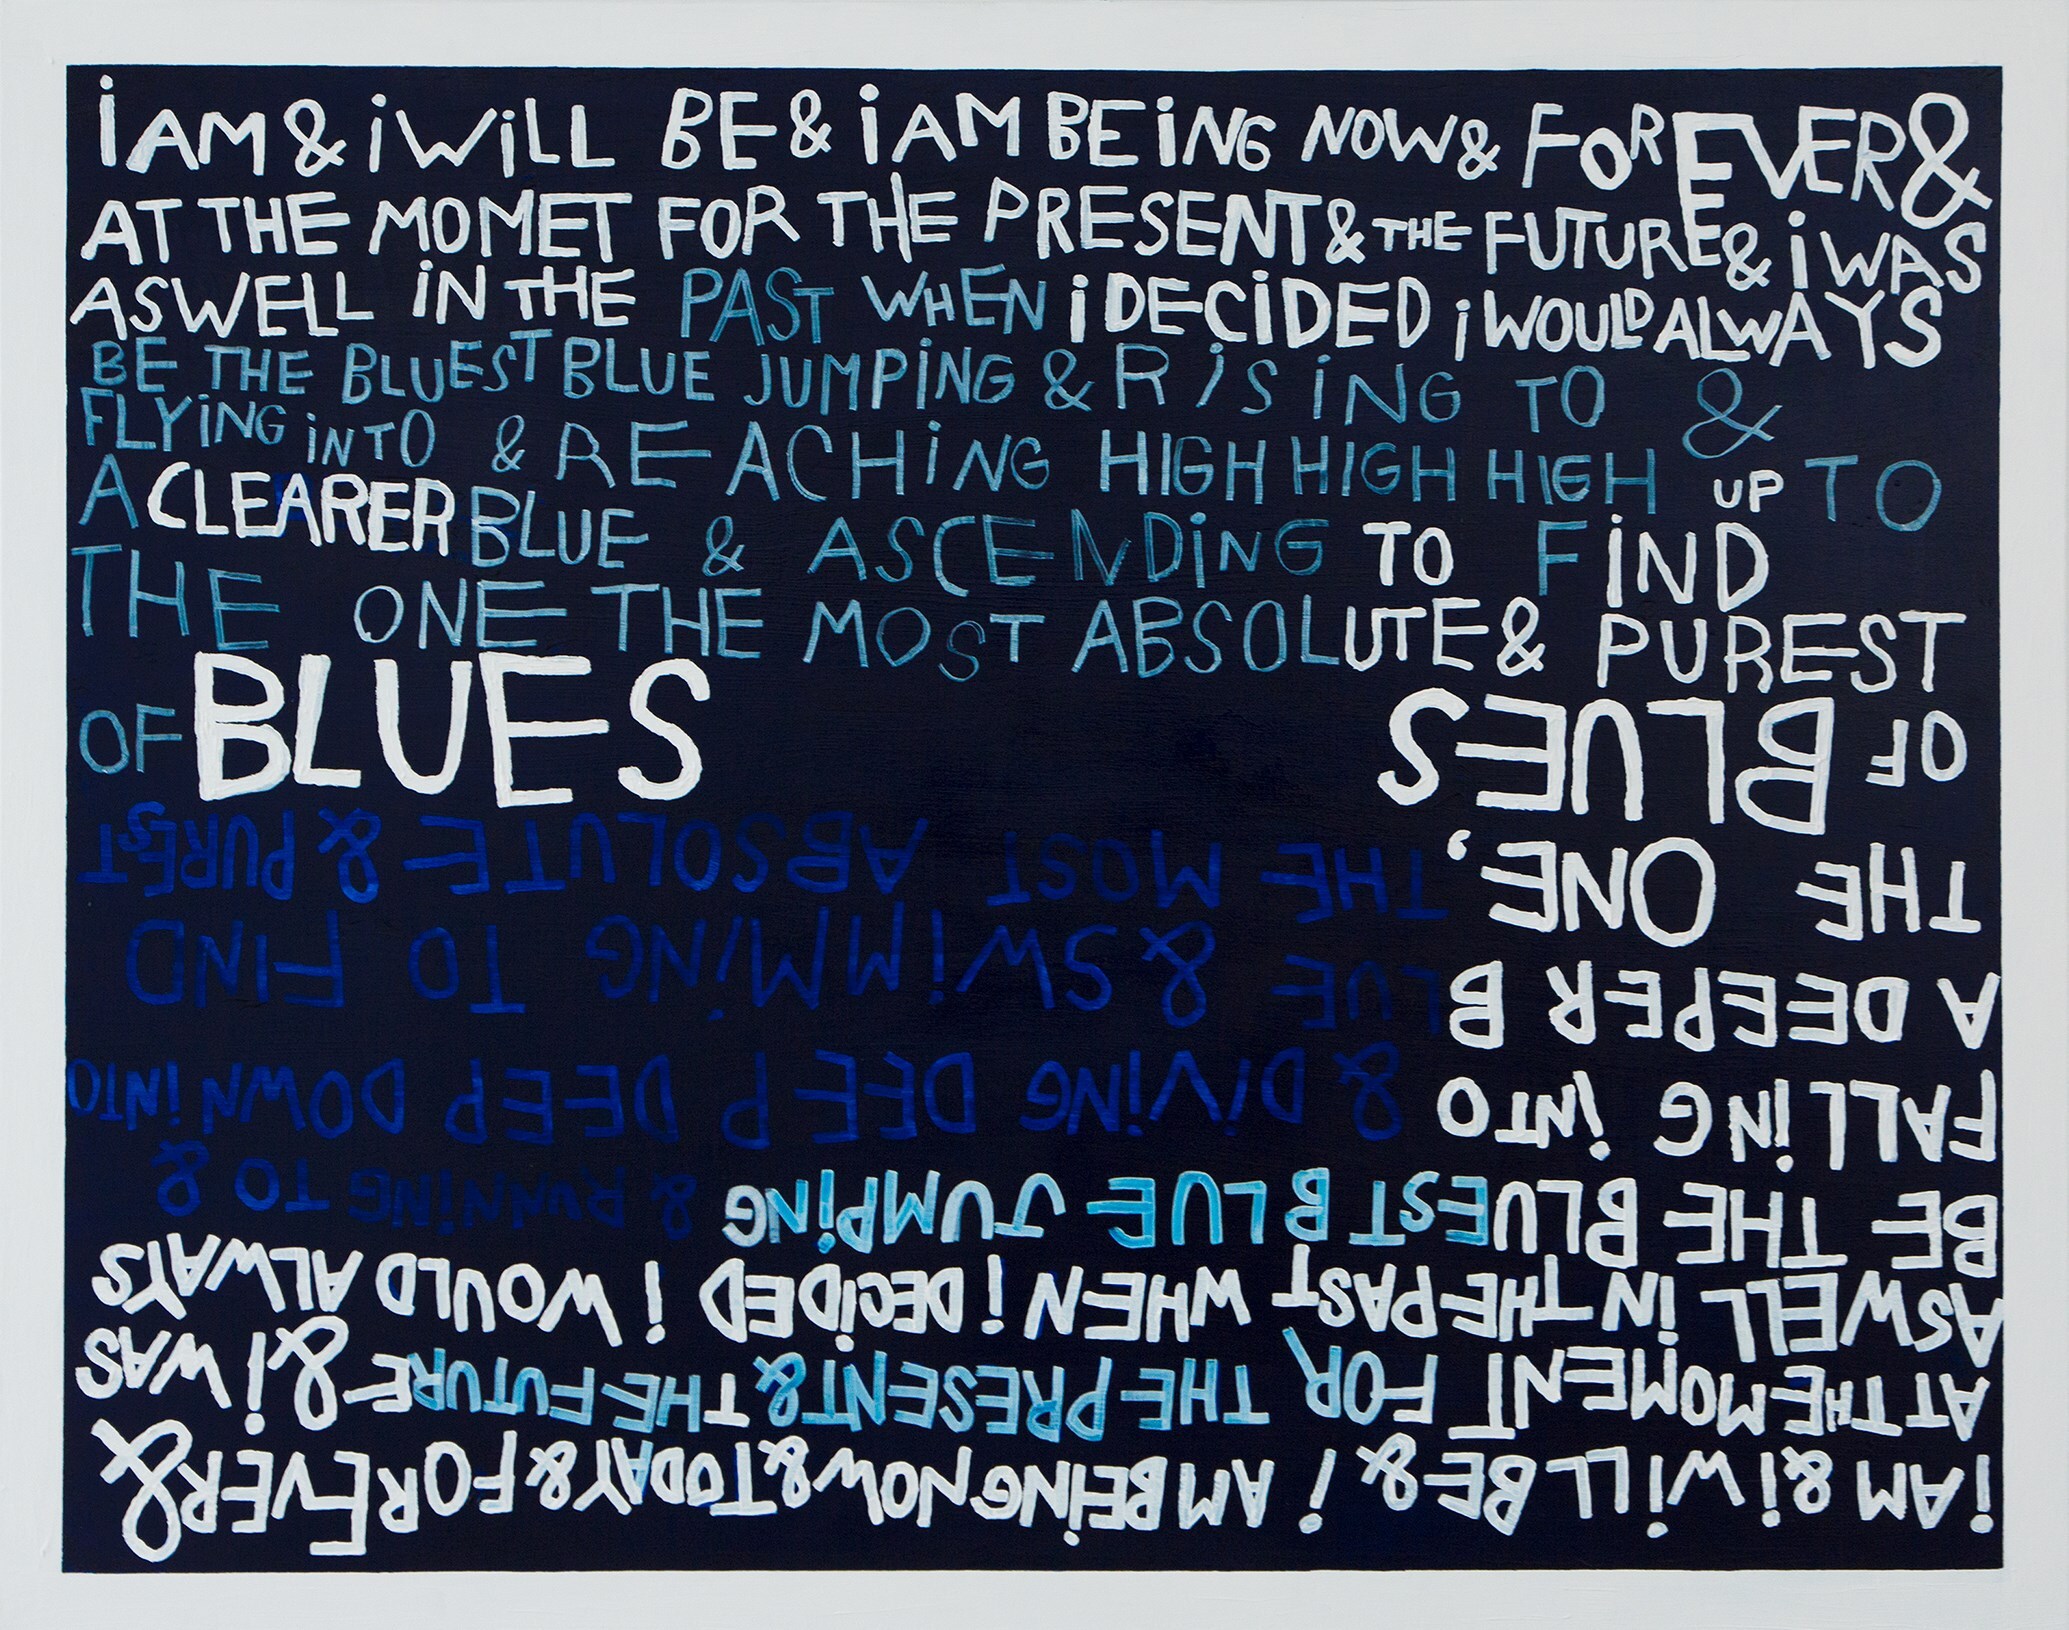 iAM & i WiLL BE & iAM BEiNG NOW & FOREVER &
AT THE MOMET FOR THE PRESENT & THE FUTURE & i WAS
ASWELL iN THE PAST WHEN i DECiDED i WOULD ALWAYS
BE THE BLUEST BLUE JUMPiNG & RiSiNG TO &
FLYiNG iNTO & REACHiNG HIGH HIGH HIGH UP TO
A CLEARER BLUE & ASCENDiNG TO FiND
THE ONE THE MOST ABSOLUTE & PUREST
OF BLUES
iAM & i WiLL BE & i AM BEiNG NOW & TODAY & FOREVER &
AT THE MOMENT FOR THE PRESENT & THE FUTURE & i WAS
ASWELL iN THE PAST WHEN i DECiDED i WOULD ALWAYS
BE THE BLUEST BLUE JUMPiNG & RUNNiNG TO &
FALLiNG iNTO & DiViNG DEEP DEEP DOWN iNTO
A DEEPER BLUE & SWiMMiNG TO FIND
THE ONE, THE MOST ABSOLUTE & PUREST
OF BLUES